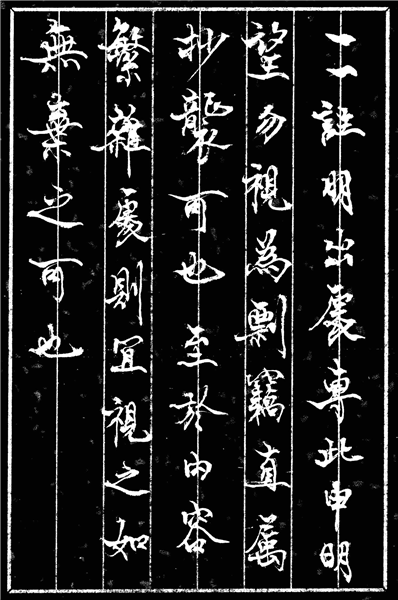 一一註明出處專此申明
望勿視為剽竊直屬
抄襲可也至於內容
繁雜處則宜視之如
無棄之可也